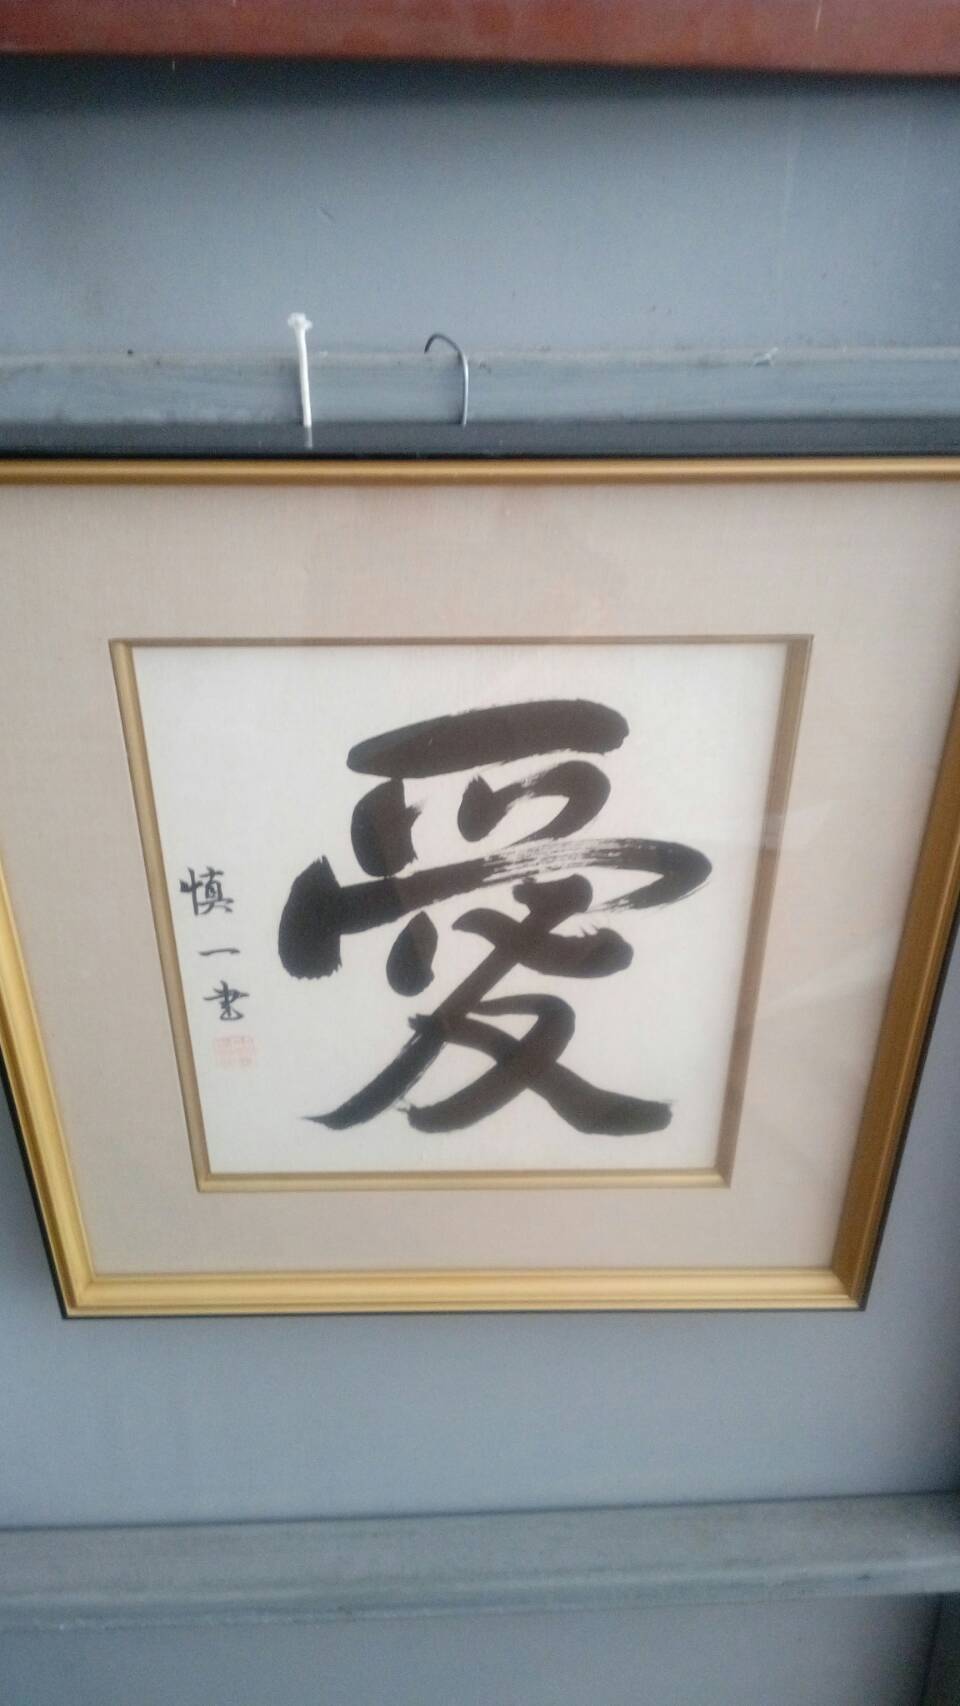 愛
慎一書